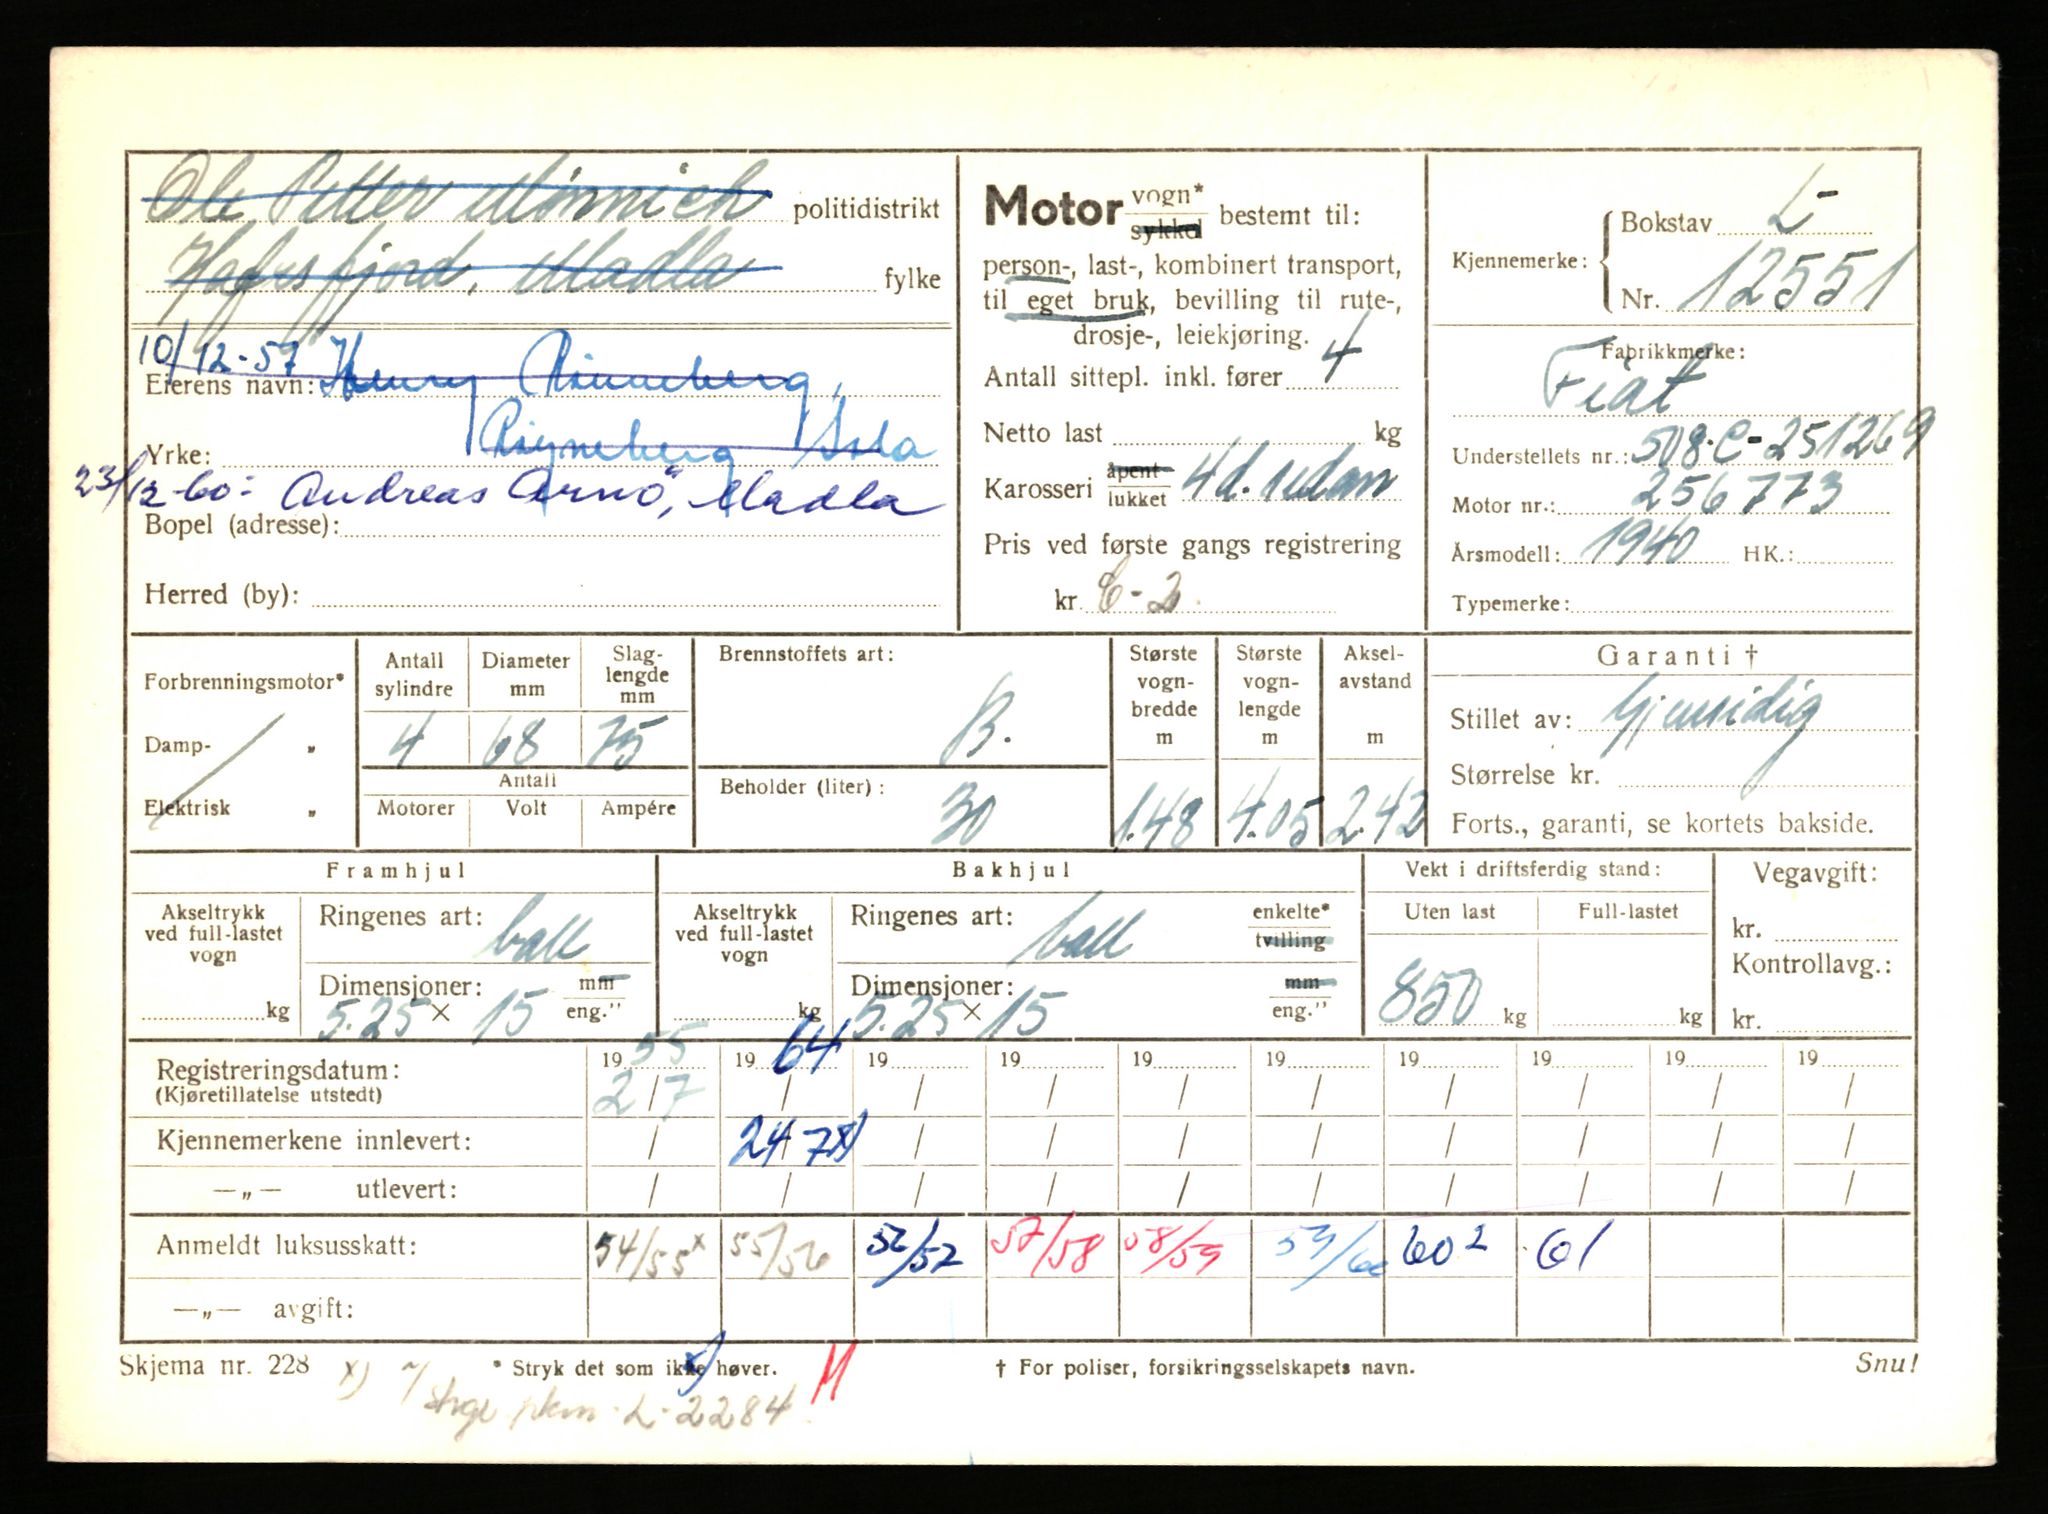 Ole Petter Mønnich politidistrikt
Hafrsfjord, Madla fylke
10/12-57 Henry
Eierens navn:
Røyneberg, Sola
Yrke:
23/12-60: Andreas Arnø, Madla
Bopel (adresse):
Herred (by):
Motor vogn* sykkel bestemt til:
person-, last-, kombinert transport,
til eget bruk, bevilling til rute-,
drosje-, leiekjøring.
Antall sittepl. inkl. fører 4
Netto last kg
Karosseri åpent lukket 4d. sedan
Pris ved første gangs registrering
kr.
Kjennemerke: Bokstav L-
Nr. 12551
Fabrikkmerke:
Fiat
Understellets nr.: 508-C-251269
Motor nr.: 256773
Årsmodell: 1940 HK.:
Typemerke:
Forbrenningsmotor*
Damp- „
Elektrisk „
Antall sylindre Diameter mm Slag-lengde mm
4 68 75
Antall
Motorer Volt Ampére
Brennstoffets art:
B.
Beholder (liter):
30
Største vogn-bredde m
1.48
Største vogn-lengde m
4.05
Aksel-avstand m
2.42
Garanti †
Stillet av: Gjensidig
Størrelse kr.
Forts., garanti, se kortets bakside.
Framhjul
Akseltrykk ved full-lastet vogn
kg
Ringenes art: ball
Dimensjoner: mm
5.25 × 15 eng.”
Bakhjul
Akseltrykk ved full-lastet vogn
kg
Ringenes art: ball enkelte* tvilling
Dimensjoner: mm
5.25 × 15 eng.”
Vekt i driftsferdig stand:
Uten last Full-lastet
850 kg kg
Vegavgift:
kr.
Kontrollavg.:
kr.
Registreringsdatum: 1955 1964 19 19 19 19 19 19 19 19
(Kjøretillatelse utstedt) 2/7 / / / / / / / / /
Kjennemerkene innlevert: / 24/7 x) / / / / / / / /
—„— utlevert: / / / / / / / / / /
Anmeldt luksusskatt: 54/55 x 55/56 56/57 57/58 58/59 59/60 60 2 61
—„— avgift:
Skjema nr. 228 * Stryk det som ikke høver. M † For poliser, forsikringsselskapets navn. Snu!
x) pkm. L-2284